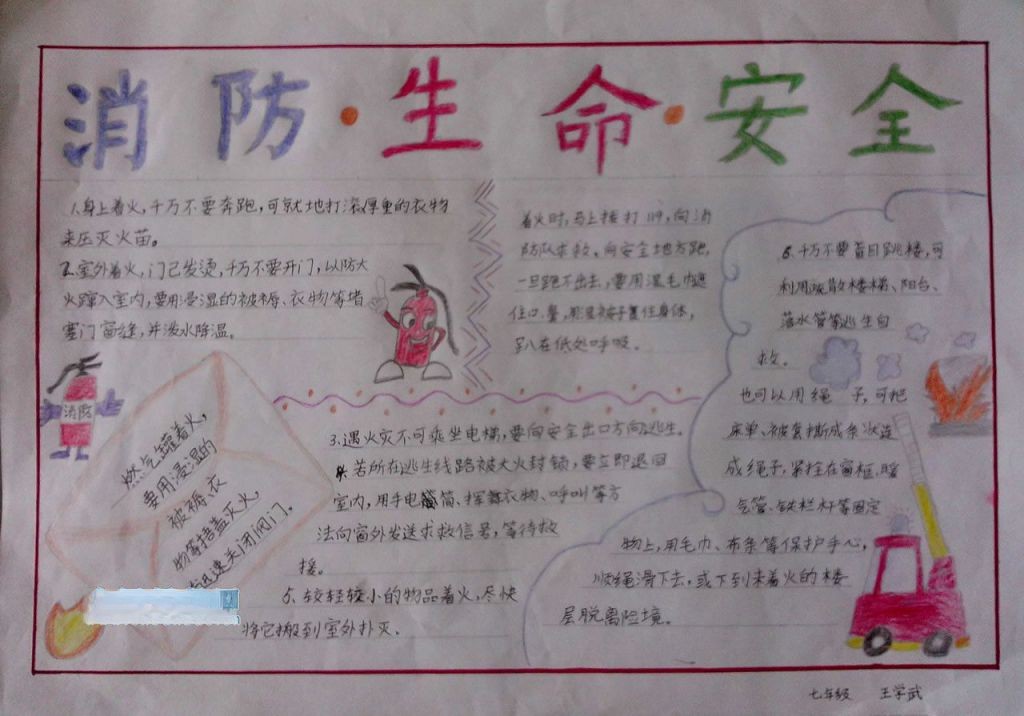 消防·生命·安全
1.身上着火,千万不要奔跑,可就地打滚厚重的衣物
来压灭火苗。
2.室外着火,门己发烫,千万不要开门,以防大
火蹿入室内,要用浸湿的被褥、衣物等堵
塞门窗缝,并泼水降温。
着火时,马上接打119,向消
防队求救,向安全地方跑,
一旦跑不出去,要用湿毛巾遮
住口、鼻,
住身体,
趴在低处呼吸。
消防
燃气罐着火,
要用浸湿的
被褥、衣
物等捂盖灭火,
迅速关闭阀门。
3.遇火灾不可乘坐电梯,要向安全出口方向逃生。
4.若所在逃生线路被大火封锁,要立即退回
室内,用手电筒、挥舞衣物、呼叫等方
法向窗外发送求救信号,等待救
援。
5.较轻较小的物品着火,尽快
将它搬到室外扑灭。
6.千万不要盲目跳楼,可
利用疏散楼梯、阳台、
落水管等逃生自
救。
也可以用绳子,可把
床单、被套撕成条状连
成绳子,紧拴在窗框、暖
气管、铁栏杆等固定
物上,用毛巾、布条等保护手心,
顺绳滑下去,或下到未着火的楼
层脱离险境。
七年级 王学武